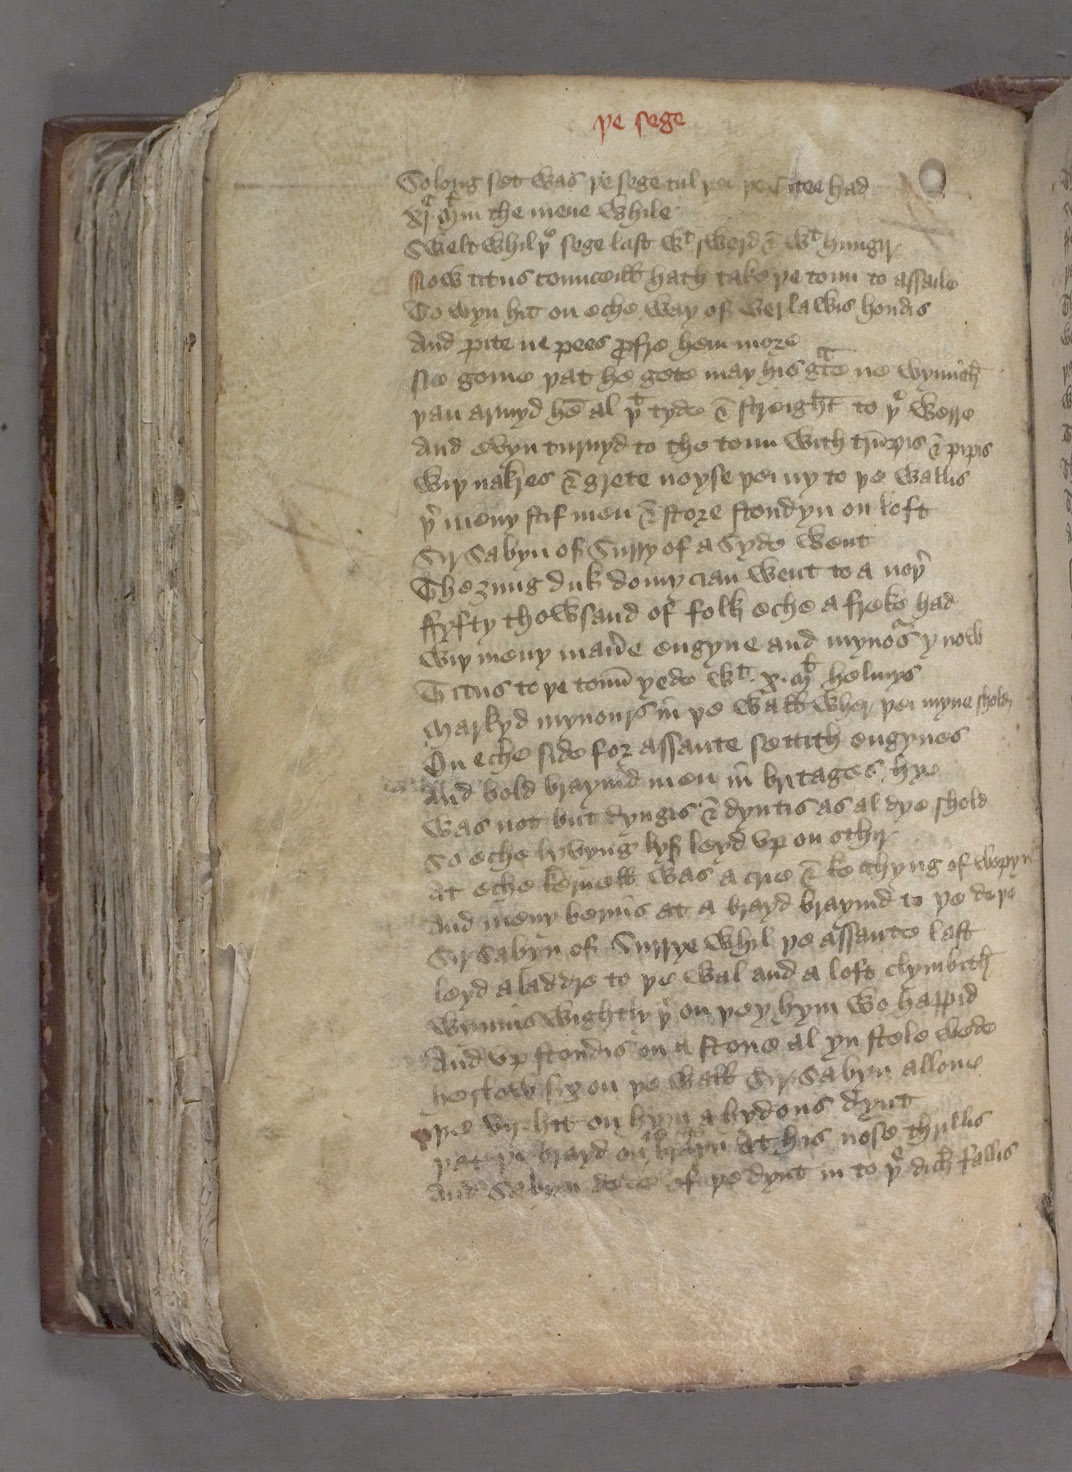 þe sege
So long set was þe sege tul þei þe Citee had
xj C Ml in the mene while
Swelt whil þe sege last wt swerd & wt hungir
Now titus counceill hath take þe toun to assaile
To wyn hit on eche way of werlawis hondis
And pite ne pees profre hem more
No gome þat he gete may his grace ne wynnith
þan armyd hē al þt tyde & streight to þe werre
And evyn turnyd to the toun with trūpis & pipis
Wiþ nakres & grete noyse þei ny to þe wallis
þr meny stif men & store stondyn on loft
Sir Sabyn of Surry of a Syde went
The ȝung duk domycian went to a noþr
ffyfty thowsand of folk eche a freke had
Wiþ meny manre engyne and mynors ynow
Titus to þe toun yede wt .x. Ml helmys
Markyd mynours in þe wall wher þei myne sholdn
On eche side for assaute settith engynes
And bold braynid men in britages hye
Was not but dyngis & dyntis as al dye shold
So eche lyvyng lyf leyd vp on othir
At eche kernell was a crie & to thyng of wepyn
And meny bernis at a brayd braynid to þe deþe
Sir Sabyn of Surrye whil þe assaute last
Leyd a laddre to þe wal and a loft clymbith
Wynnis wightly þr on þey hym wo happid
And vp stondis on a stone al yn stele wede
he slow six on þe wall Sir Sabyn allone
þe vij hit on hym a hydous dynt
þat þe brayd out brayn at his nose thrillis
And Sabyn dede of þe dynt in to þe dich fallis